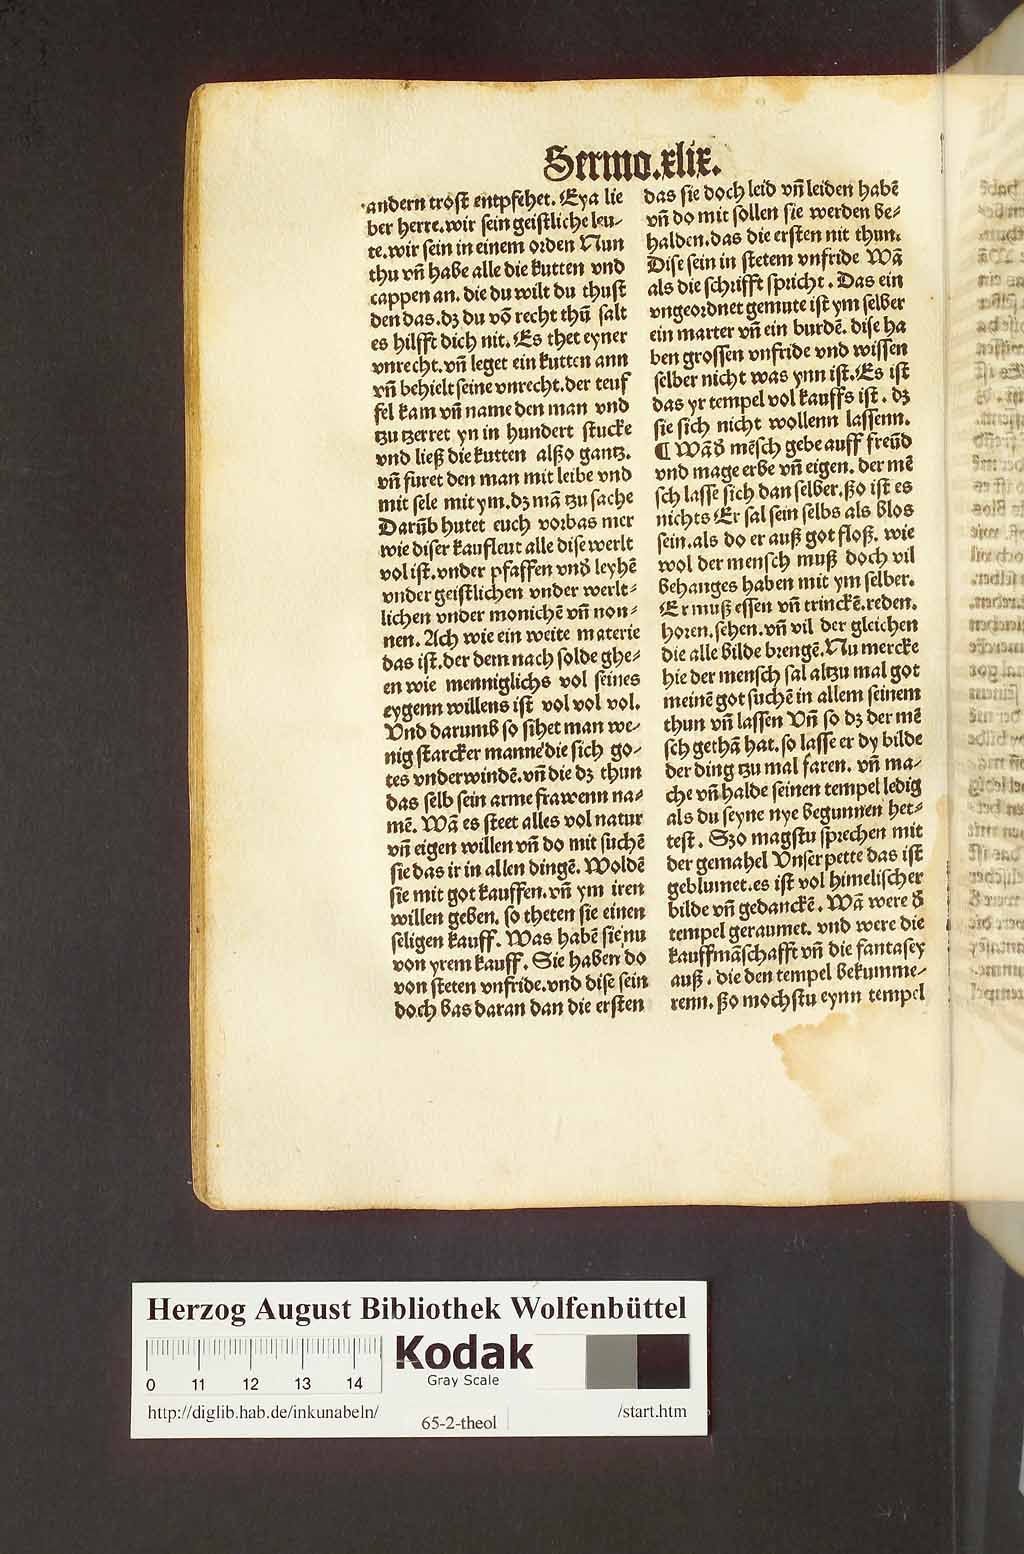 Sermo.xlix.
andern trost entpfehet. Eya lie
ber herre.wir sein geistliche leu-
te.wir sein in einem orden Nun
thu vñ habe alle die kutten vnd
cappen an. die du wilt du thust
den das.dz du võ recht thũ salt
es hilfft dich nit. Es thet eyner
vnrecht.vñ leget ein kutten ann
vñ behielt seine vnrecht.der teuf
fel kam vñ name den man vnd
tzu tzerret yn in hundert stucke
vnd ließ die kutten alßo gantz.
vñ furet den man mit leibe vnd
mit sele mit ym.dz mã tzu sache
Darũb hutet euch vorbas mer
wie diser kaufleut alle dise werlt
vol ist.vnder pfaffen vnd leyhẽ
vnder geistlichen vnder werlt-
lichen vnder monichẽ vñ non-
nen. Ach wie ein weite materie
das ist.der dem nach solde ghe-
en wie menniglichs vol seines
eygenn willens ist vol vol vol.
Vnd darumb so sihet man we-
nig starcker manne die sich go-
tes vnderwindẽ.vñ die dz thun
das selb sein arme frawenn na-
mẽ. Wã es steet alles vol natur
vñ eigen willen vñ do mit suchẽ
sie das ir in allen dingẽ. Woldẽ
sie mit got kauffen.vñ ym iren
willen geben. so theten sie einen
seligen kauff. Was habẽ sie nu
von yrem kauff. Sie haben do
von steten vnfride.vnd dise sein
doch bas daran dan die ersten
das sie doch leid vñ leiden habẽ
vñ do mit sollen sie werden be-
halden.das die ersten nit thun.
Dise sein in stetem vnfride Wã
als die schrifft spricht. Das ein
vngeordnet gemute ist ym selber
ein marter vñ ein burdẽ. dise ha
ben grossen vnfride vnd wissen
selber nicht was ynn ist. Es ist
das yr tempel vol kauffs ist. dz
sie sich nicht wollenn lassenn.
¶ Wãd mẽsch gebe auff freũd
vnd mage erbe vñ eigen. der mẽ
sch lasse sich dan selber.ßo ist es
nichts Er sal sein selbs als blos
sein.als do er auß got floß. wie
wol der mensch muß doch vil
behanges haben mit ym selber.
Er muß essen vñ trinckẽ.reden.
horen.sehen.vñ vil der gleichen
die alle bilde brengẽ. Nu mercke
hie der mensch sal altzu mal got
meinẽ got suchẽ in allem seinem
thun vñ lassen Vñ so dz der mẽ
sch gethã hat.so lasse er dy bilde
der ding tzu mal faren. vñ ma-
che vñ halde seinen tempel ledig
als du seyne nye begunnen het-
test. Szo magstu sprechen mit
der gemahel Vnser pette das ist
geblumet.es ist vol himelischer
bilde vñ gedanckẽ. Wã were d̕
tempel geraumet. vnd were die
kauffmãschafft vñ die fantasey
auß. die den tempel bekumme-
renn. ßo mochstu eynn tempel
Herzog August Bibliothek Wolfenbüttel
0 11 12 13 14
Kodak
Gray Scale
http://diglib.hab.de/inkunabeln/
65-2-theol
/start.htm